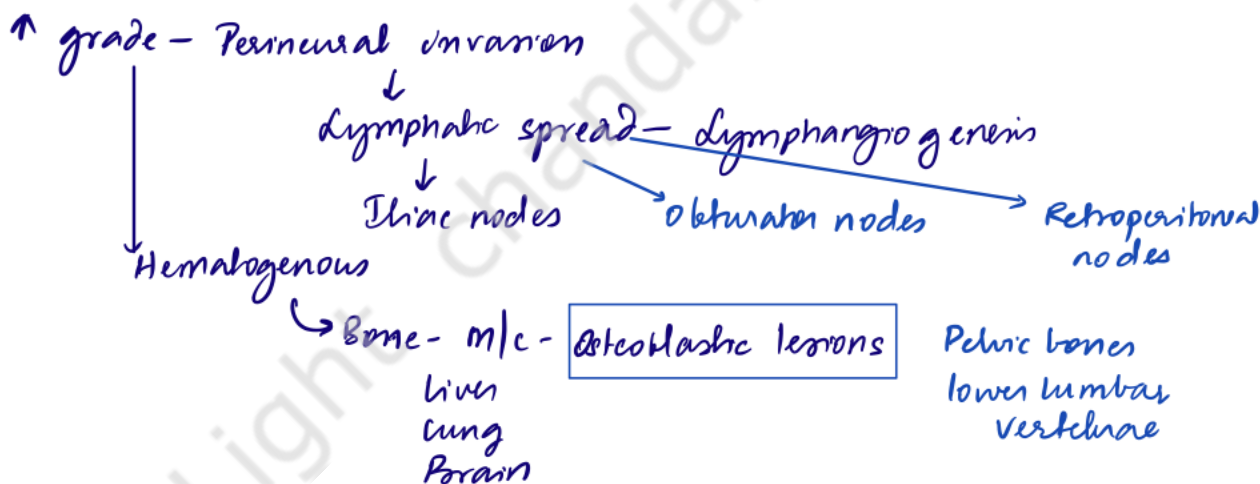 ↑ grade - Perineural invasion
Lymphatic spread - Lymphangiogenesis
Iliac nodes Obturator nodes Retroperitoneal nodes
Hematogenous
Bone - m/c - Osteoblastic lesions Pelvic bones
Liver lower lumbar
Lung vertebrae
Brain